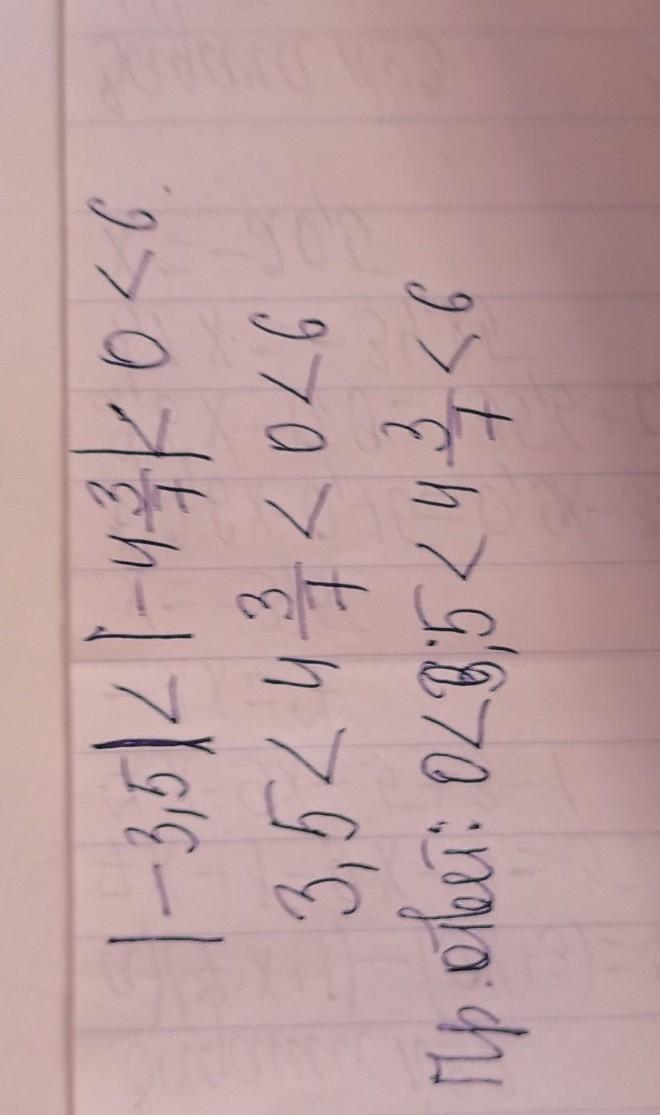 |-3,5| < |-4 3/7| < 0 < 6.
3,5 < 4 3/7 < 0 < 6
Пр. ответ: 0 < 3,5 < 4 3/7 < 6